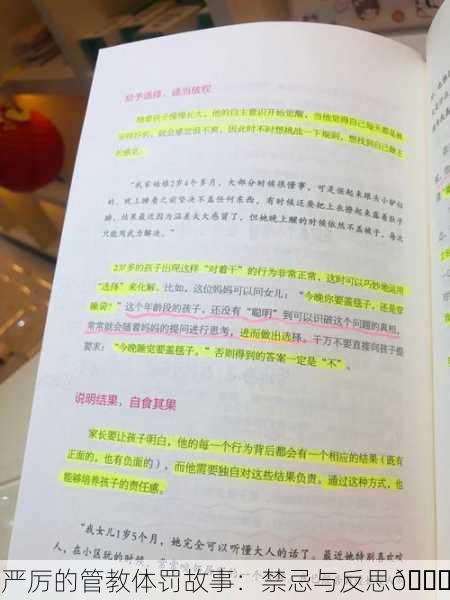 给予选择，适当放权
随着孩子慢慢长大，他的自主意识开始觉醒，当他觉得自己每天都是被
安排好的，就会感觉很不爽，因此时不时想挑战一下规则，想找到自己做主
的感觉。
“我家姑娘2岁4个多月，大部分时候很懂事，可是倔起来跟头小驴似
的。晚上睡着之前坚决不盖任何东西，有时候还要把上衣撩起来露着肚子
睡，结果最近因为温差太大感冒了，但她晚上醒的时候依然不盖被子，每次
只能用武力解决。”
2岁多的孩子出现这样“对着干”的行为非常正常，这时可以巧妙地运用
“选择”来化解。比如，这位妈妈可以问女儿：“今晚你要盖毯子，还是穿
睡袋？”这个年龄段的孩子，还没有“聪明”到可以识破这个问题的真相，
常常就会随着妈妈的提问进行思考，进而做出选择。千万不要直接向孩子提
要求：“今晚睡觉要盖毯子。”否则得到的答案一定是“不”。
说明结果，自食其果
家长要让孩子明白，他的每一个行为背后都会有一个相应的结果（既有
正面的，也有负面的），而他需要独自对这些结果负责。通过这种方式，也
能够培养孩子的责任感。
“我女儿1岁5个月，她完全可以听懂大人的话了。最近特别喜欢咬
人，在小区玩的时候，
严厉的管教体罚故事：禁忌与反思